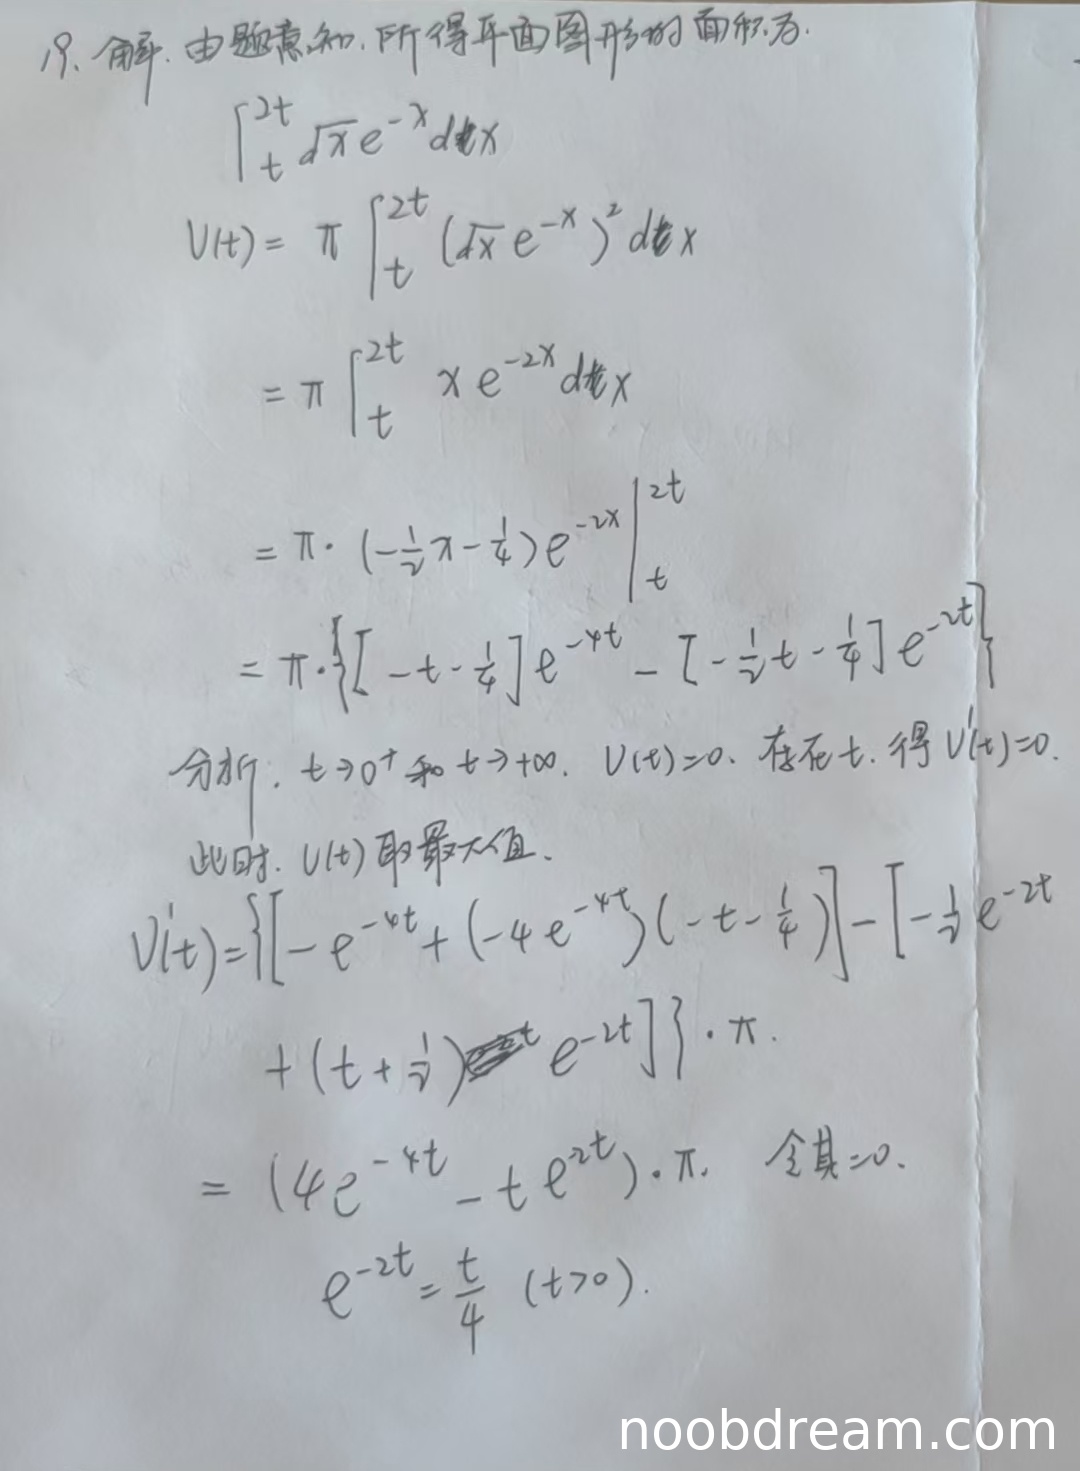 19. 解. 由题意知, 所得平面图形的面积为.
∫_t^{2t} √x e^{-x} dx
V(t) = π ∫_t^{2t} (√x e^{-x})² dx
= π ∫_t^{2t} x e^{-2x} dx
= π · (-1/2 x - 1/4) e^{-2x} |_t^{2t}
= π · {[-t - 1/4] e^{-4t} - [-1/2 t - 1/4] e^{-2t}}
分析: t→0⁺ 和 t→+∞. V(t)=0. 存在 t. 得 V'(t)=0.
此时. V(t) 取最大值.
V'(t) = {[-e^{-4t} + (-4e^{-4t})(-t - 1/4)] - [-1/2 e^{-2t}
+ (t + 1/2) e^{-2t}]} · π.
= (4e^{-4t} - t e^{2t}) · π. 令其=0.
e^{-2t} = t/4 (t>0).
noobdream.com